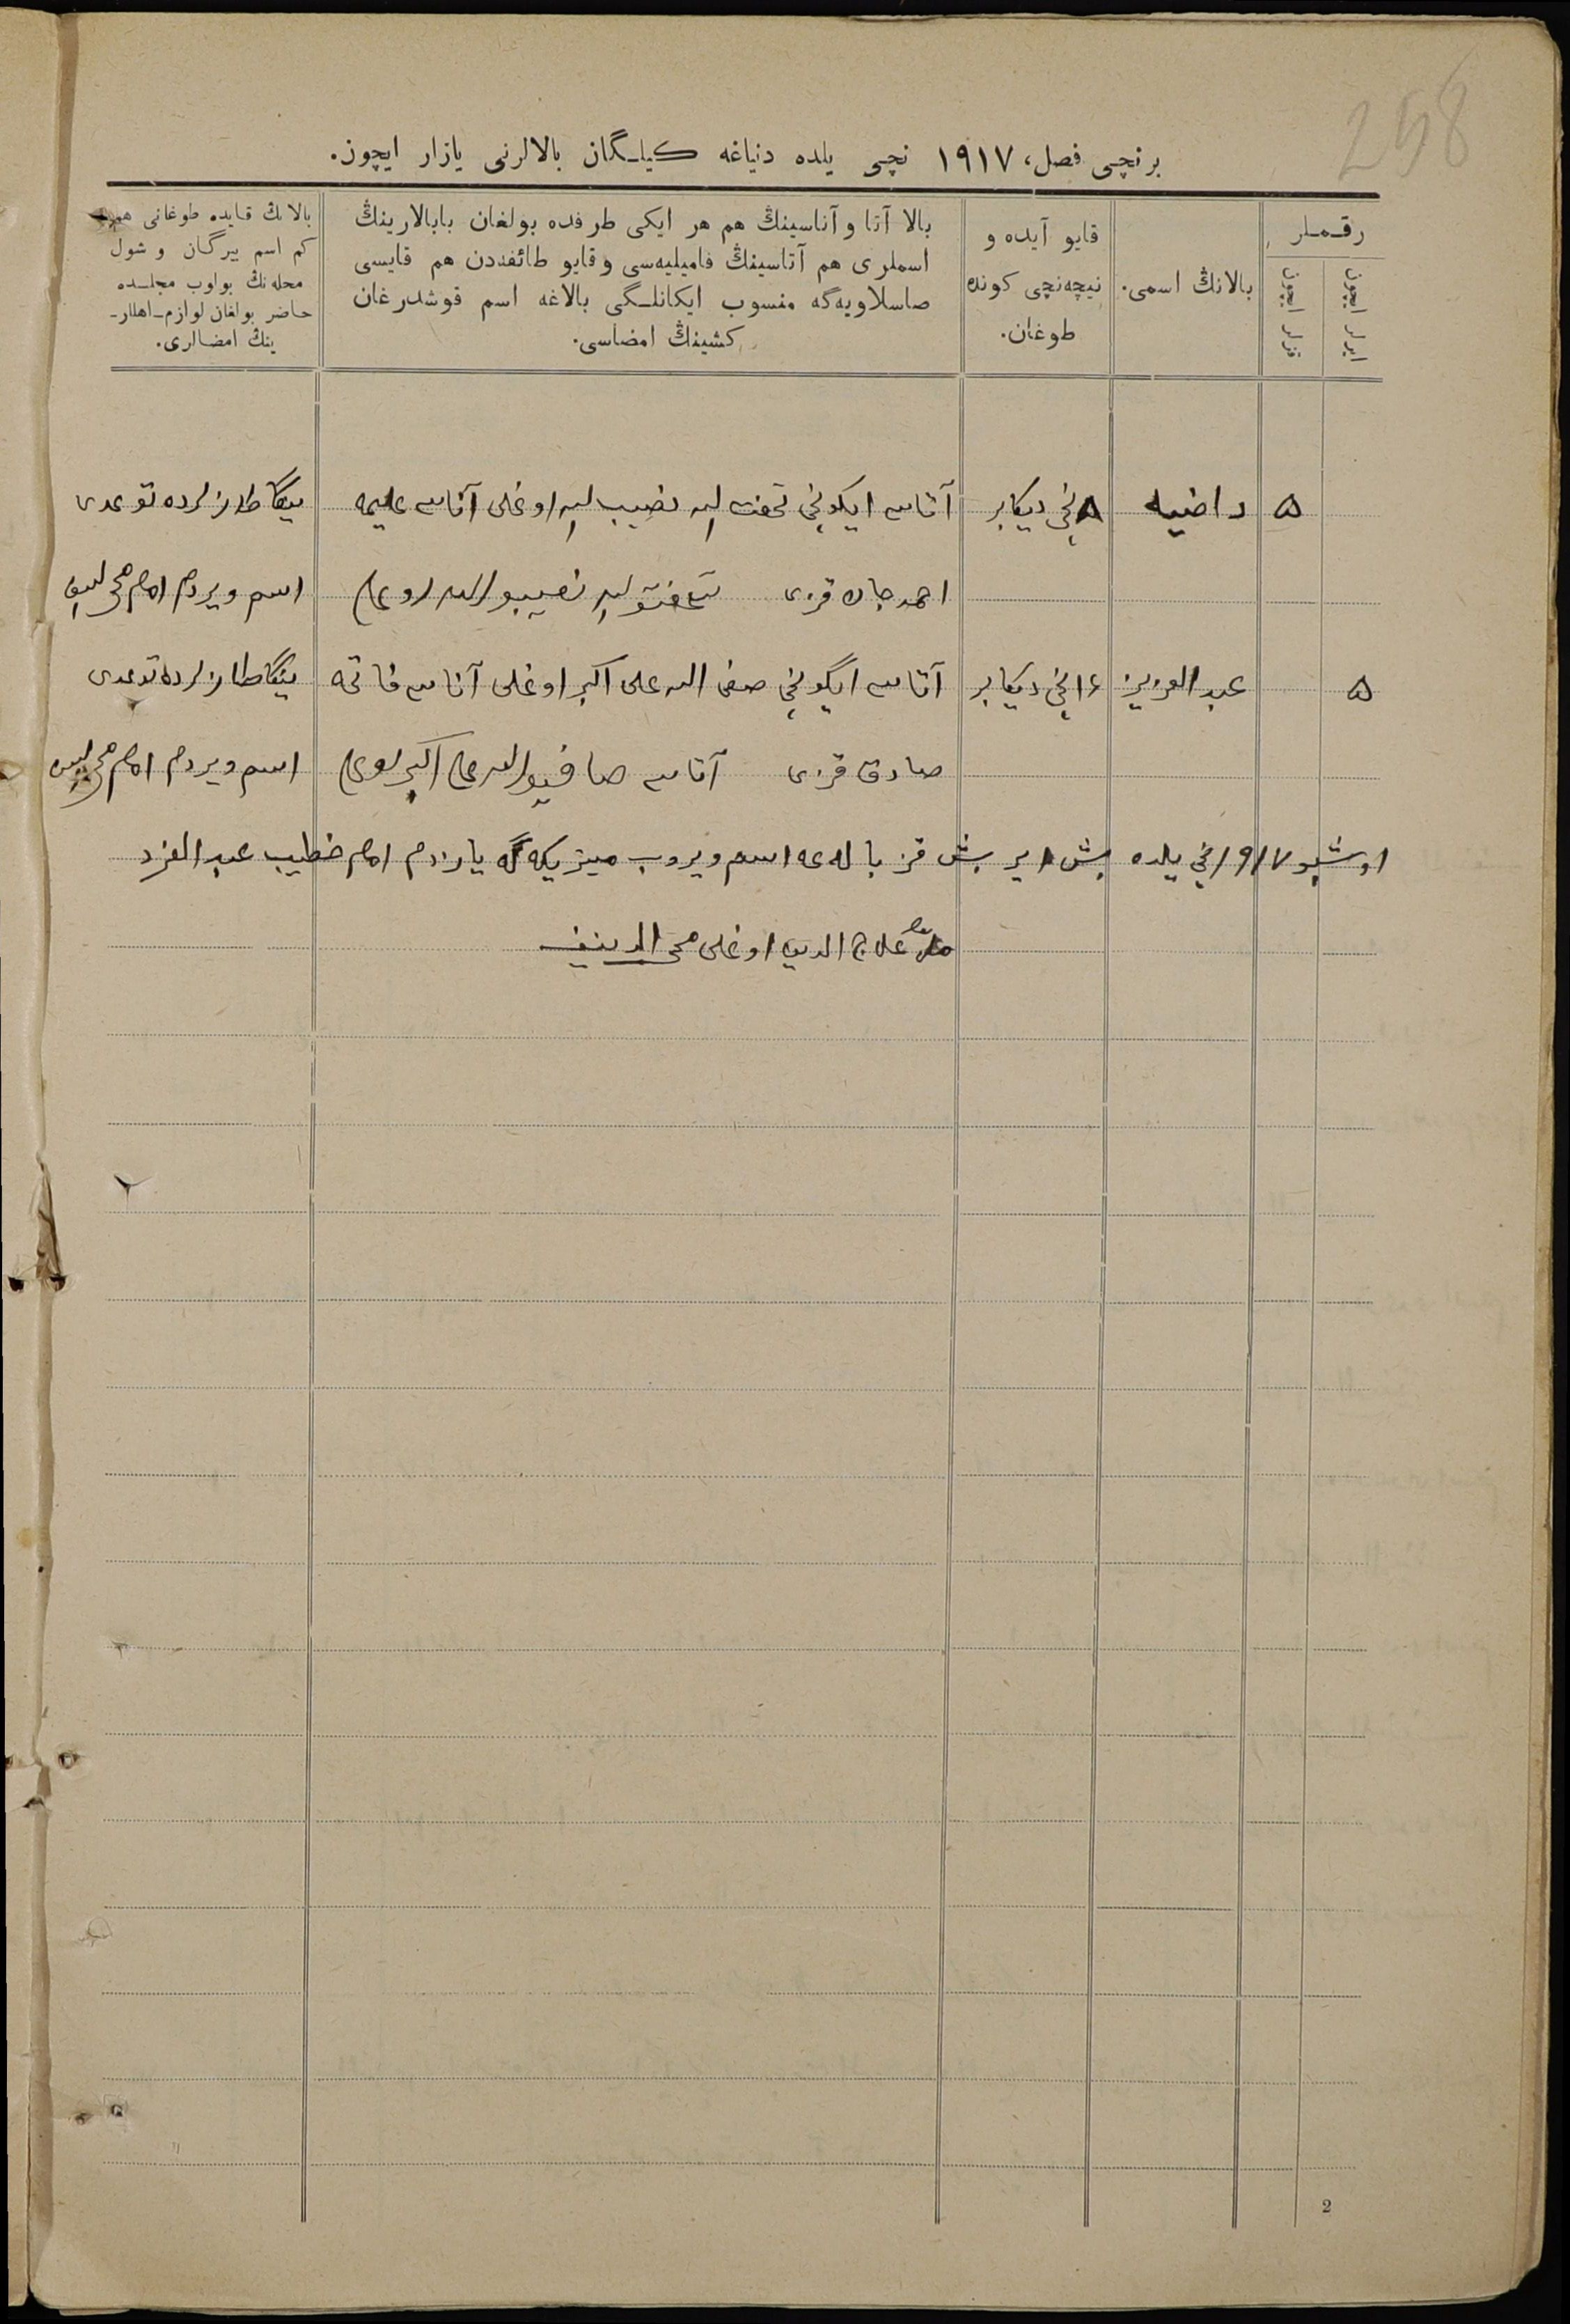 258
برنچی فصل، ١٩١٧ نچی یلده دنیاغه كیلـگان بالالرنی یازار ایچون.
رقـملر
ایرلر ایچون
قزلر ایچون
بالانڭ اسمی.
قایو آیده و
نیچه‌نچی كونده
طوغان.
بالا آتا و آناسینڭ هم هر ایكی طرفده بولغان بابالارینڭ
اسملری هم آتاسینڭ فامیلیه‌سی و قایو طائفه‌دن هم قایسی
صاسلاویه‌گه منسوب ایكانلـگی بالاغه اسم قوشدرغان
كشینڭ امضاسی.
بالانڭ قایده طوغانی هم
كم اسم بیرگان و شول
محله‌نڭ بولوب مجلـسده
حاضر بولغان لوازم-اهللر-
ینڭ امضالاری.
٥ راضیه ٨ نچی دیكابر آتاسی ایكونچی تحفت الله نصیب الله اوغلی آناسی علیمه
احمد جان قزی
اسم ویردم امام
٥ عبد العزیز ١٤ نچی دیكابر آتاسی ایگونچی صفی الله علی اكبر اوغلی آناسی فاتحه
صادق قزی آتاسی صافیوالله
اسم ویردم امام
اوشبو ١٩١٧ نچی یلده بش ایر بش قز باله‌غه اسم ویروب میتریكه‌گه یازدم امام خطیب
علاج الدین اوغلی محی الدینف
2